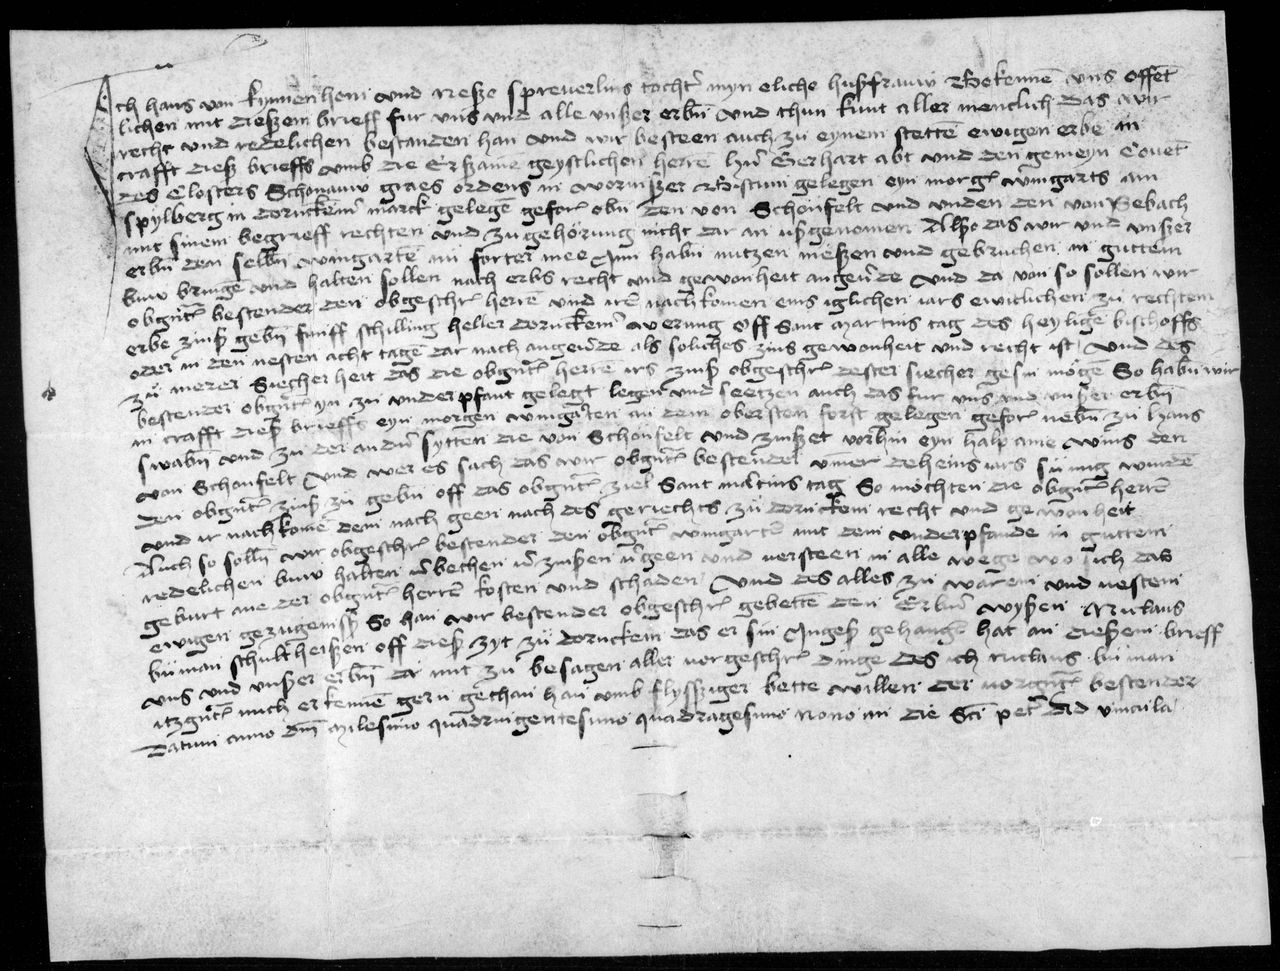 Ich hans von kynnenhem und Nese sprewerlins tochter myn eliche husfrauw Bekennē uns offēt
lichen mit dießem brieff fur uns und alle unßer erbn̄ und thun kunt aller menclich das wir
recht und redelichen bestanden han und wir besteen auch zu eynem stettē ewigen erbe in
crafft dieß brieffs umb die Ersame geystlichen herrē hr̄n Gerhart abt und den gemeyn Covēt
des Closters Schonauw graes ordens in wormßer Bistum gelegen eyn morgē wingarts am
spylberg in dornckemr̄ marck gelegē gefor obn̄ den von Schonfelt und unden den von Sebach
mit sinem begrieff rechten und zugehorung nicht dar an ußgenomen Also das wir und unßer
erbn̄ den selbn̄ wingartē nu forter mee Inn habn̄ nutzen nießen und gebruchen in guttem
buw bringē und halten sollen nach erbs recht und gewonheit angeverde Und da von so sollen wir
obgntē bestender den obgeschr̄ herrē und irē nachkomen eins iglichen iars ewiclichen zu rechtem
erbe zinß gebn̄ funff schilling heller dornckemr̄ werung off sant martins tag des heyligē bischoffs
oder in den nesten acht tagē dar nach angeverde als soliches zins gewonheit und recht ist Und des
zu merer Siecherheit das die obgntē herrē irs zinß obgeschr̄ dester siecher gesin mogē So habn̄ wir
bestender obgntē yn zu underpfant gelegt legen und seetzen auch das fur uns und unßer erbn̄
in crafft dieß brieffs eyn morgen wingarten an dem obersten forst gelegen gefor nebn̄ zu hans
swabn̄ und zu der andn̄ sytten die von Schonfelt und zinßet vorhin eyn halp ame wins den
von Schonfelt Und wer es sach das wir obgntē bestender ummer deheins iars sumig wurdē
den obgntē zinß zu gebn̄ off das obgntē ziel Sant martins tag So mochten die obgntē herrē
und ir nachkomē dem nach geen nach des geriechts zu dornckem recht und gewonheit
Auch so solln̄ wir obgeschr̄ bestender den obgntē wingartē mit dem underpfande in guttem
redelichen buw halten verbethen verzinßen vergeen und versteen in alle wege wo sich das
geburt ane der obgntē herrē kosten und schaden Und des alles zu warem und vestem
ewigen gezugeniß So han wir bestender obgeschr̄ gebettē den Erbern wyßen Niclaus
buman schultheißen off dieß zyt zu dornckem das er sin Ingeß gehangē hat an dießem brieff
uns und unßer erbn̄ da mit zu besagen aller vorgeschr̄ dinge des ich Niclaus buman
itzgntē mich erkennē gern gethan han umb flyssziger bette willen der vorgntē bestender
Datum anno dm̄ milesimo quadringentesimo quadragesimo nono in die Sc̄i petr̄ ad vincula